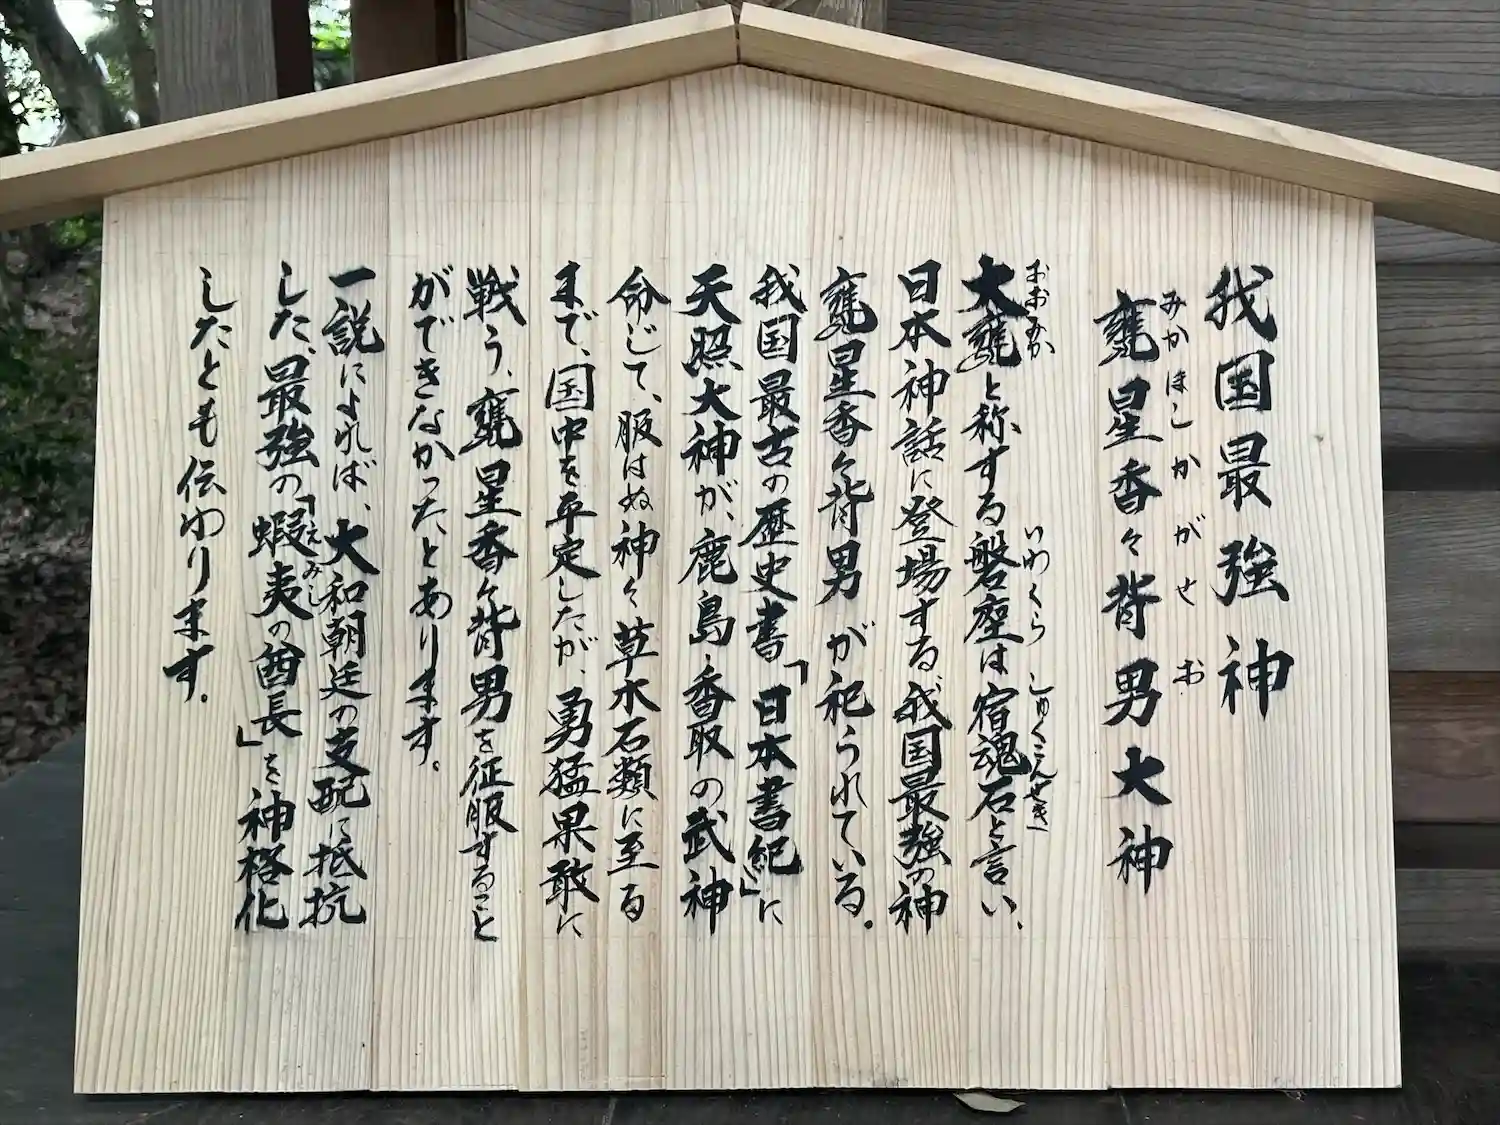 我国最強神
甕星香々背男大神
みかほしかがせお
大甕と称する磐座は宿魂石と言い、
おおみか
いわくら
しゅくこんせき
日本神話に登場する、我国最強の神
甕星香々背男が祀られている。
我国最古の歴史書「日本書紀」に
天照大神が、鹿島・香取の武神
命じて、服はぬ神々草木石類に至る
まで、国中を平定したが、勇猛果敢に
戦う、甕星香々背男を征服すること
ができなかった、とあります。
一説によれば、大和朝廷の支配に抵抗
した、最強の「蝦夷の酋長」を神格化
えみし
したとも伝わります。